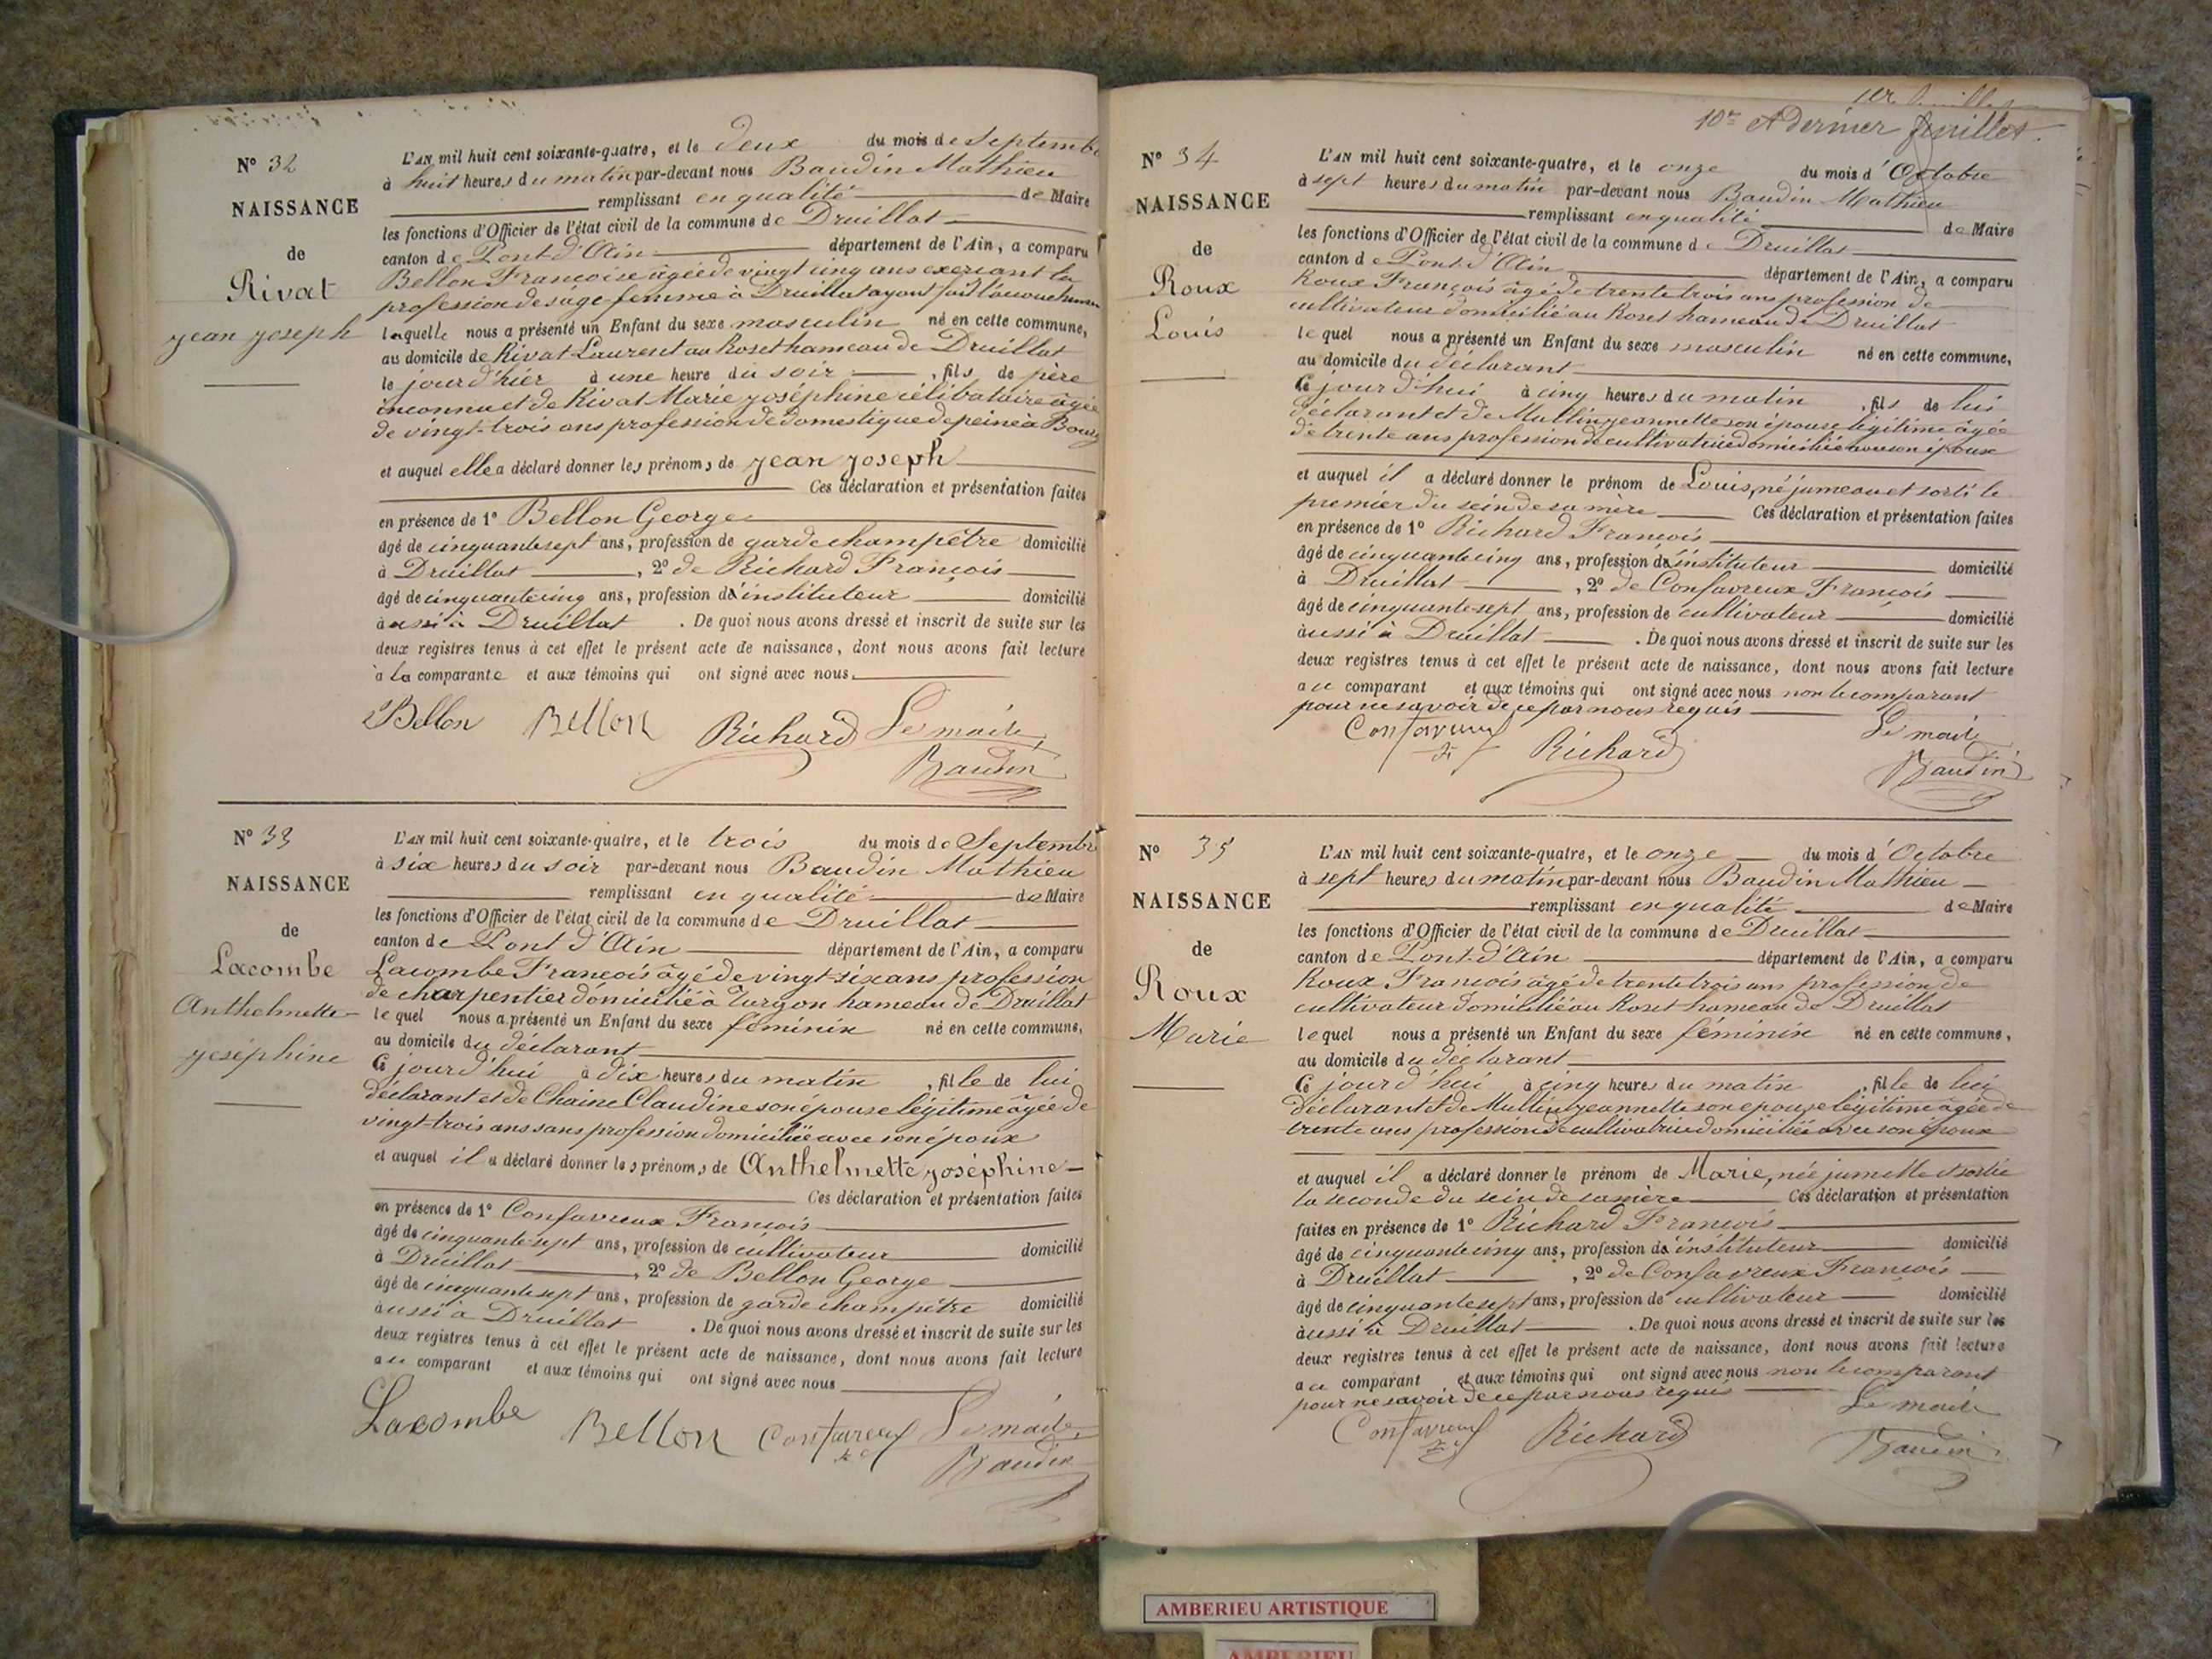 N° 32
NAISSANCE
de
Rivat
jean joseph
L'AN mil huit cent soixante-quatre, et le deux du mois de Septembre
à huit heures du matin par-devant nous Baudin Mathieu
remplissant en qualité de Maire
les fonctions d'Officier de l'état civil de la commune de Druillat
canton de Pont d'Ain département de l'Ain, a comparu
Bellon Francoise âgée de vingt cinq ans exercant la
profession de sage-femme à Druillat ayant fait l'accouchement
laquelle nous a présenté un Enfant du sexe masculin né en cette commune,
au domicile de Rivat Laurent au Roset hameau de Druillat
le jour d'hier à une heure du soir, fils de père
inconnu et de Rivat Marie joséphine célibataire âgée
de vingt-trois ans profession de domestique de peine à Bourg
et auquel elle a déclaré donner les prénoms de jean joseph
Ces déclaration et présentation faites
en présence de 1° Bellon George
âgé de cinquante sept ans, profession de garde champêtre domicilié
à Druillat, 2° de Richard François
âgé de cinquante cinq ans, profession d'instituteur domicilié
aussi à Druillat. De quoi nous avons dressé et inscrit de suite sur les
deux registres tenus à cet effet le présent acte de naissance, dont nous avons fait lecture
à la comparante et aux témoins qui ont signé avec nous.
Bellon Bellon Richard Le maire
Baudin
N° 33
NAISSANCE
de
Lacombe
Anthelmette
joséphine
L'AN mil huit cent soixante-quatre, et le trois du mois de Septembre
à six heures du soir par-devant nous Baudin Mathieu
remplissant en qualité de Maire
les fonctions d'Officier de l'état civil de la commune de Druillat
canton de Pont d'Ain département de l'Ain, a comparu
Lacombe François âgé de vingt-six ans profession
de charpentier domicilié à Turgon hameau de Druillat
lequel nous a présenté un Enfant du sexe féminin né en cette commune,
au domicile du déclarant
Ce jour d'hui à dix heures du matin, fille de lui
déclarant et de Chaine Claudine son épouse légitime âgée de
vingt-trois ans sans profession domiciliée avec son époux
et auquel il a déclaré donner les prénoms de Anthelmette joséphine
Ces déclaration et présentation faites
en présence de 1° Confavreux François
âgé de cinquante sept ans, profession de cultivateur domicilié
à Druillat, 2° de Bellon George
âgé de cinquante sept ans, profession de garde champêtre domicilié
aussi à Druillat. De quoi nous avons dressé et inscrit de suite sur les
deux registres tenus à cet effet le présent acte de naissance, dont nous avons fait lecture
au comparant et aux témoins qui ont signé avec nous
Lacombe Bellon Confavreux Le maire
Baudin
10me et dernier feuillet.
N° 34
NAISSANCE
de
Roux
Louis
L'AN mil huit cent soixante-quatre, et le onze du mois d'Octobre
à sept heures du matin par-devant nous Baudin Mathieu
remplissant en qualité de Maire
les fonctions d'Officier de l'état civil de la commune de Druillat
canton de Pont d'Ain département de l'Ain, a comparu
Roux François âgé de trente trois ans profession de
cultivateur domicilié au Roset hameau de Druillat
lequel nous a présenté un Enfant du sexe masculin né en cette commune,
au domicile du déclarant
Ce jour d'hui à cinq heures du matin, fils de lui
déclarant et de Mullin jeannette son épouse légitime âgée
de trente ans profession de cultivatrice domiciliée avec son époux
et auquel il a déclaré donner le prénom de Louis, né jumeau et sorti le
premier du sein de sa mère Ces déclaration et présentation faites
en présence de 1° Richard François
âgé de cinquante cinq ans, profession d'instituteur domicilié
à Druillat, 2° de Confavreux François
âgé de cinquante sept ans, profession de cultivateur domicilié
aussi à Druillat. De quoi nous avons dressé et inscrit de suite sur les
deux registres tenus à cet effet le présent acte de naissance, dont nous avons fait lecture
au comparant et aux témoins qui ont signé avec nous non le comparant
pour ne savoir de ce par nous requis
Confavreux Richard Le maire
Baudin
N° 35
NAISSANCE
de
Roux
Marie
L'AN mil huit cent soixante-quatre, et le onze du mois d'Octobre
à sept heures du matin par-devant nous Baudin Mathieu
remplissant en qualité de Maire
les fonctions d'Officier de l'état civil de la commune de Druillat
canton de Pont d'Ain département de l'Ain, a comparu
Roux François âgé de trente trois ans profession de
cultivateur domicilié au Roset hameau de Druillat
lequel nous a présenté un Enfant du sexe féminin né en cette commune,
au domicile du déclarant
Ce jour d'hui à cinq heures du matin, fille de lui
déclarant et de Mullin jeannette son épouse légitime âgée de
trente ans profession de cultivatrice domiciliée avec son époux
et auquel il a déclaré donner le prénom de Marie, née jumelle et sortie
la seconde du sein de sa mère Ces déclaration et présentation
faites en présence de 1° Richard François
âgé de cinquante cinq ans, profession d'instituteur domicilié
à Druillat, 2° de Confavreux François
âgé de cinquante sept ans, profession de cultivateur domicilié
aussi à Druillat. De quoi nous avons dressé et inscrit de suite sur les
deux registres tenus à cet effet le présent acte de naissance, dont nous avons fait lecture
au comparant et aux témoins qui ont signé avec nous non le comparant
pour ne savoir de ce par nous requis
Confavreux Richard Le maire
Baudin
AMBERIEU ARTISTIQUE
AMBERIEU